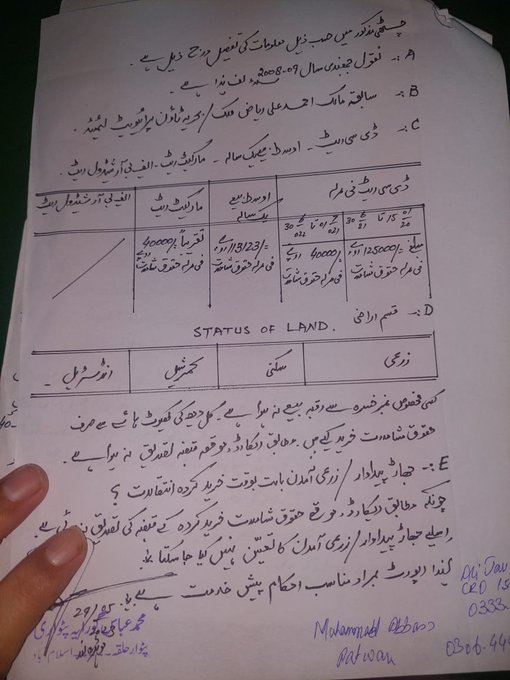 چٹھی مذکور میں حسب ذیل معلومات کی تفصیل درج ذیل ہے۔
A :- نقول جمعبندی سال 2008-09 لف ہذا ہے۔
B :- سابقہ مالک احمد علی ریاض ملک / بحریہ ٹاؤن پرائیویٹ لمیٹڈ۔
C :- ڈی سی ریٹ - اوسط یک سالہ - مارکیٹ ریٹ - ایف بی آر شیڈول ریٹ۔
ڈی سی ریٹ فی مرلہ | اوسط بیع یک سالہ | مارکیٹ ریٹ | ایف بی آر شیڈول ریٹ
مبلغ =/125000 روپے فی مرلہ حقوق شاملات | =/40000 روپے فی مرلہ حقوق شاملات | =/113123 روپے فی مرلہ حقوق شاملات | تقریباً =/40000 روپے فی مرلہ حقوق شاملات
D :- قسم اراضی
STATUS OF LAND.
زرعی | سکنی | کمرشل | انڈسٹریل -
کسی مخصوص نمبر خسرہ سے رقبہ بیع نہ ہوا ہے۔ کھیوٹ ہائے سے صرف
حقوق شاملات خرید کیے ہیں۔ مطابق ریکارڈ و موقع قبضہ تصدیق نہ ہوا ہے۔
E :- جھاڑ پیداوار / زرعی آمدن بابت بوقت خرید کردہ انتقالات؟
چونکہ مطابق ریکارڈ و موقع حقوق شاملات خرید کردہ کے قبضہ کی تصدیق نہ ہوئی ہے
اسلیے جھاڑ پیداوار / زرعی آمدن کا تعین نہیں کیا جا سکتا ہے
لہذا رپورٹ بمراد مناسب احکام پیش خدمت ہے
29/05
محمد عباس پٹواری
پٹوار حلقہ
Muhammad Abbass
Patwari
CRD
0333
0306-444